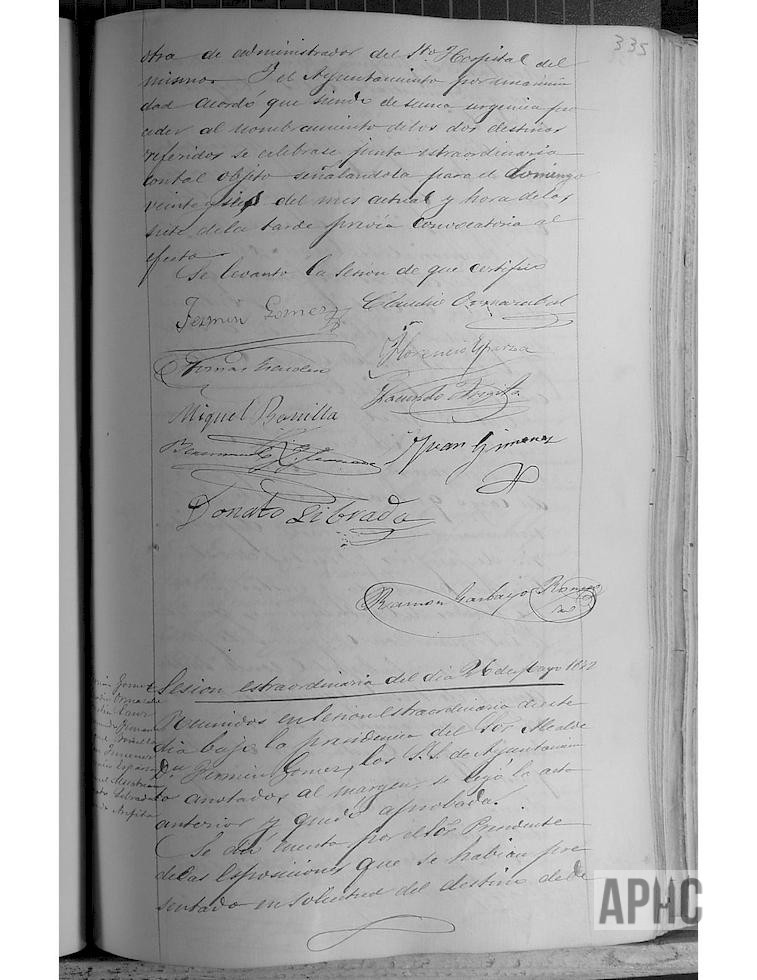 335
otra de administrador del Sto. Hospital del
mismo. Y el Ayuntamiento por unanimi
dad acordó que siendo de suma urgencia pro
ceder al nombramiento de los dos destinos
referidos se celebrase junta estraordinaria
con tal objeto señalandola para el domingo
veinte y seis del mes actual y hora de las
siete de la tarde previa convocatoria al
efecto.
Se levantó la sesion de que certifico
Fermin Gomez Claudio Ormazabal
Tomas
Florencio Esparza
Facundo Arpita
Miguel Bonilla
Juan Gimenez
Donato Librada
Ramon Garbayo Romeo
Sesion estraordinaria del dia 26 de Mayo 1872
Reunidos en sesion estraordinaria de este
dia bajo la presidencia del Sor. Alcalde
Dn. Fermin Gomez, los S.S. de Ayuntamien
to anotados al margen, se leyó la acta
anterior y quedó aprobada.
Se dió cuenta por el Sor. Presidente
de las esposiciones que se habian pre
sentado en solicitud del destino de De
APHC